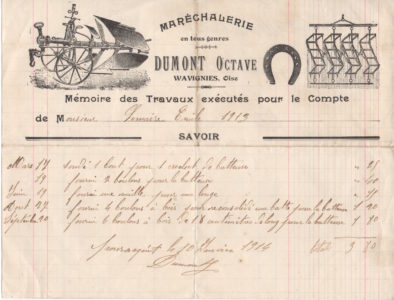 MARÉCHALERIE
en tous genres
DUMONT OCTAVE
WAVIGNIES, Oise
Mémoire des Travaux exécutés pour le Compte
de Monsieur Emile 1913
SAVOIR
Mars 17 soudé 1 bout pour 1 de batteuse " 25
" 19 fourni 2 boulons pour la batteuse " 40
Juin 19 fourni une pour " 15
Août 27 fourni 4 boulons à bois pour la batteuse 1 20
Septembre 20 fourni 6 boulons à bois de 18 centimètres de long pour la batteuse 1 80
le 10 Janvier 1914 total 3 80
Dumont